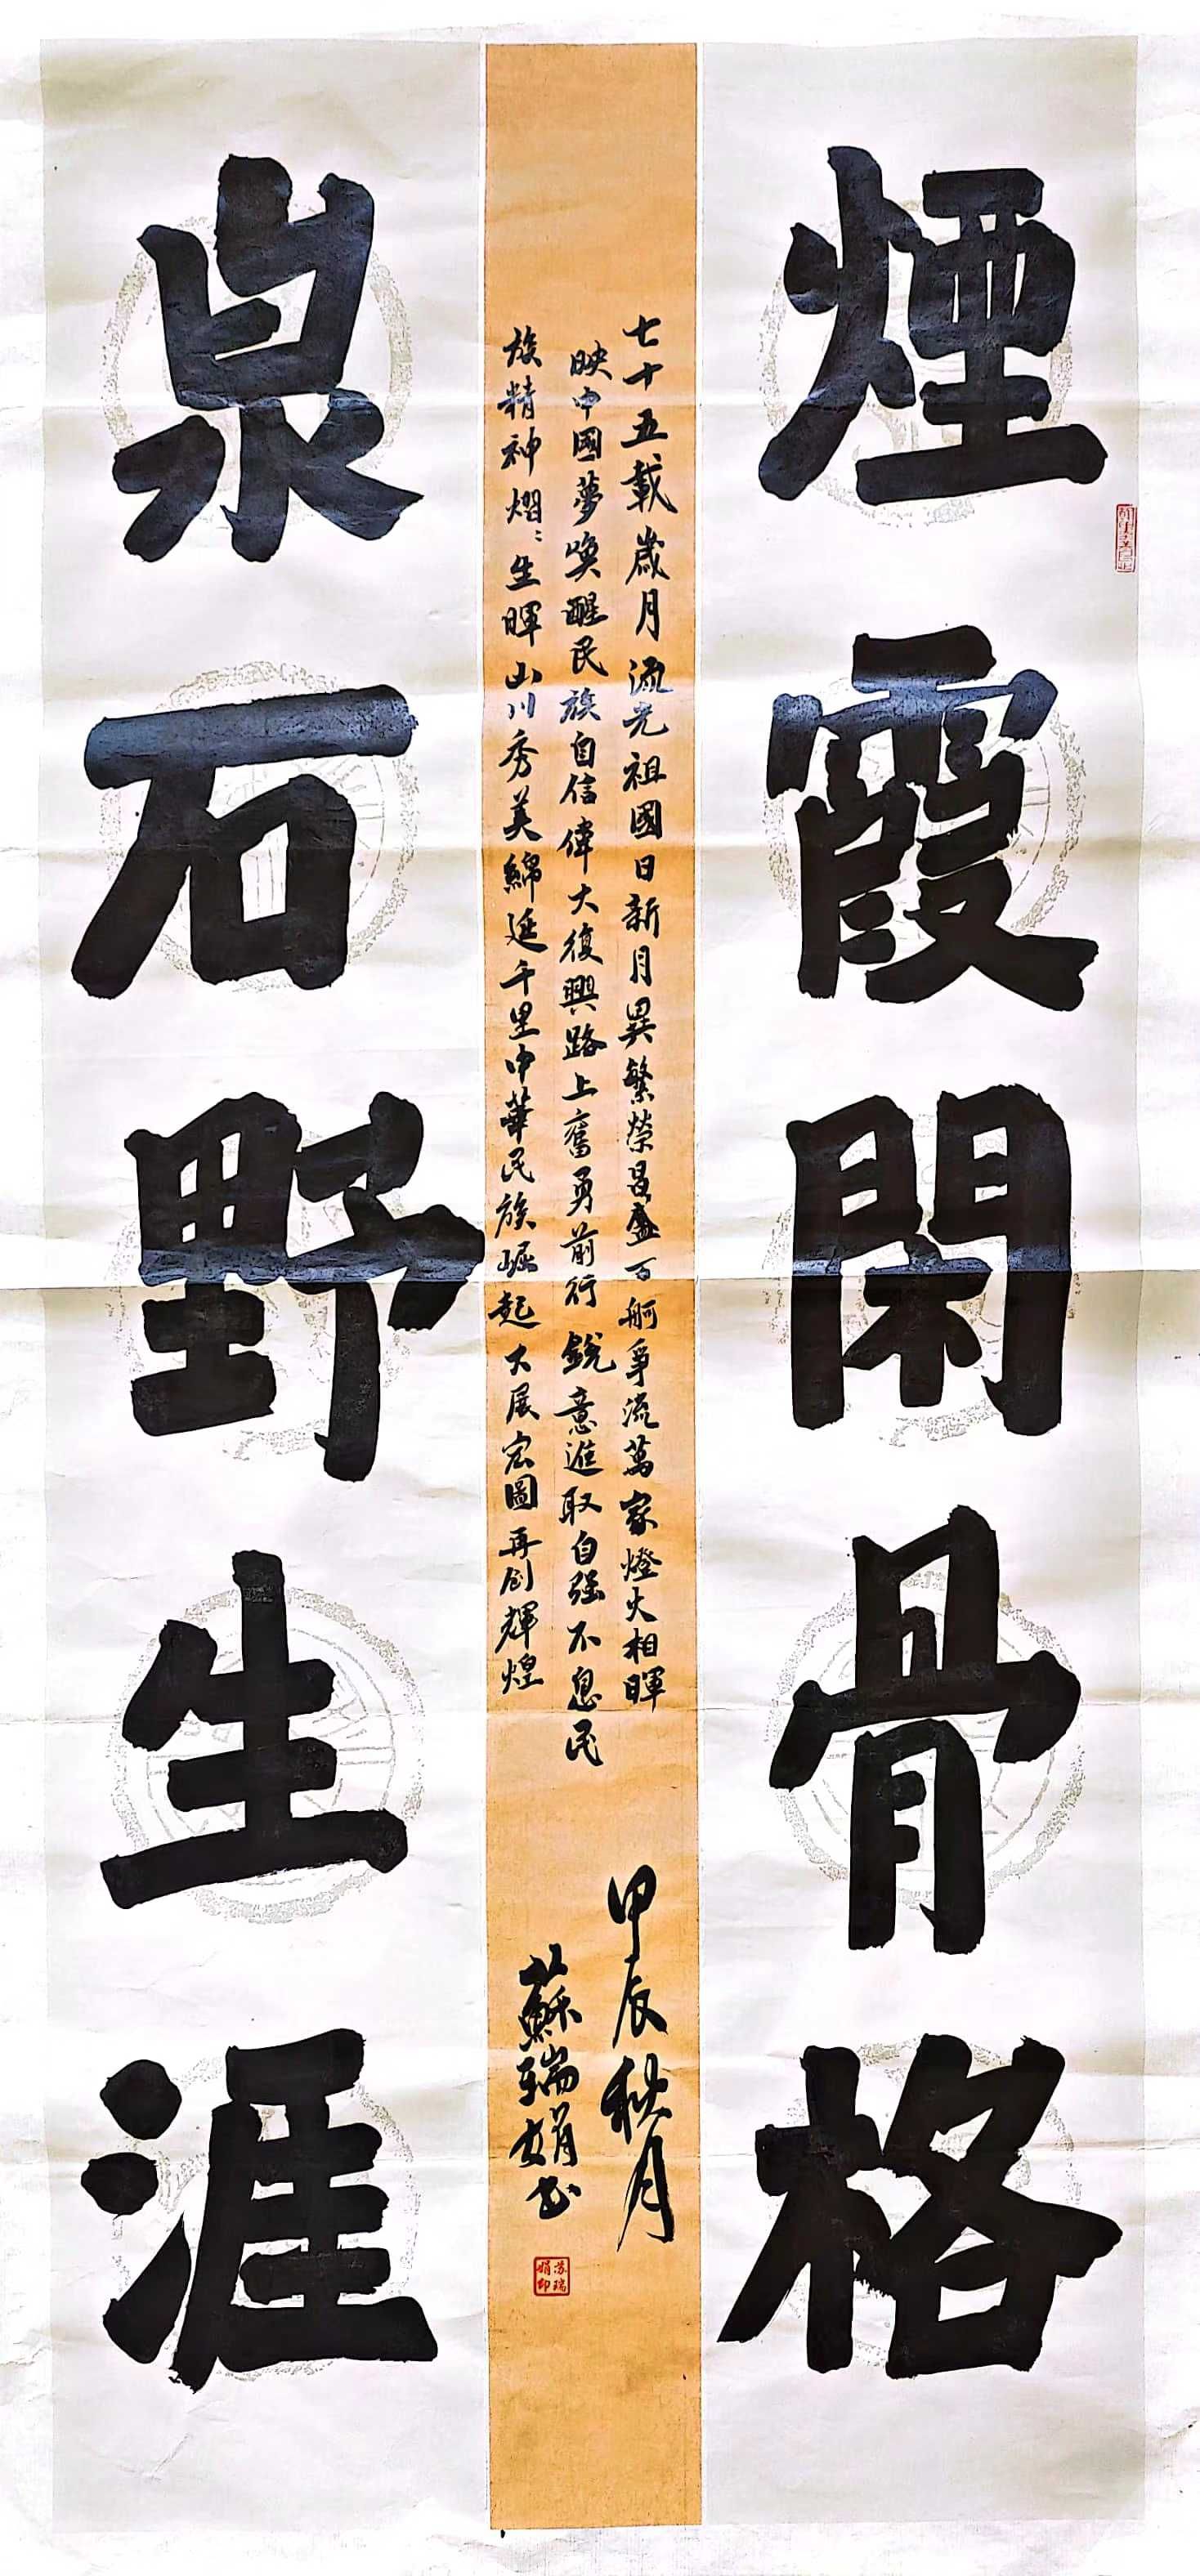 煙霞閑骨格
泉石野生涯
七十五載歲月流光祖國日新月異繁榮昌盛百舸爭流萬家燈火相暉
映中國夢喚醒民族自信偉大復興路上奮勇前行銳意進取自强不息民
族精神熠〻生暉山川秀美綿延千里中華民族崛起大展宏圖再創輝煌
甲辰秋月
蘇瑞娟书
苏瑞娟印